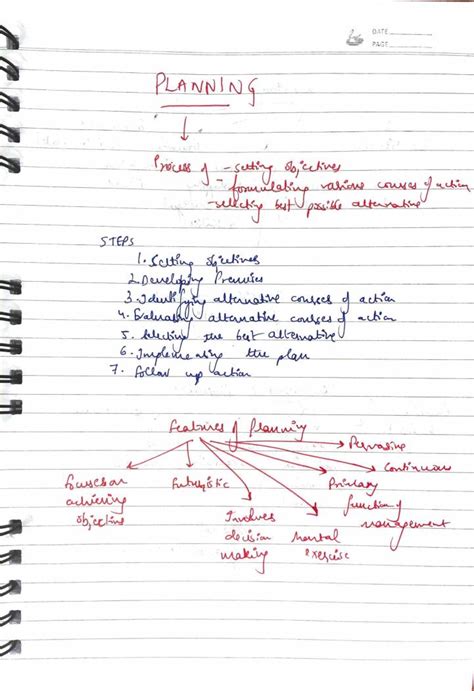 DATE
PAGE
PLANNING
Process of - setting objectives
- formulating various courses of action
- selecting best possible alternative
STEPS
1. Setting objectives
2. Developing Premises
3. Identifying alternative courses of action
4. Evaluating alternative courses of action
5. Selecting the best alternative
6. Implementing the plan
7. Follow up action
Features of Planning
Pervasive
Continuous
Primary
function of
management
Focuses on
achieving
objective
Futuristic
Involves
decision
making
Mental
exercise